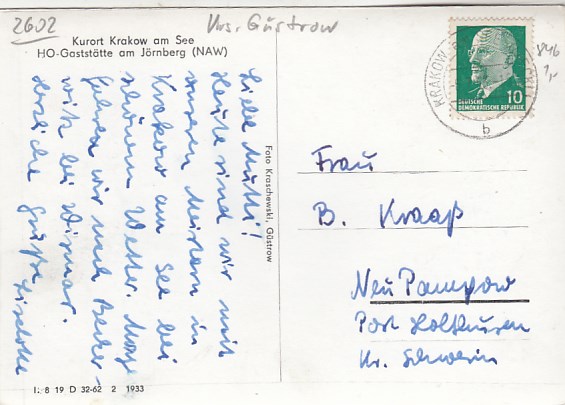 2602
Krs. Güstrow
Kurort Krakow am See
HO-Gaststätte am Jörnberg (NAW)
Liebe Mutti!
Heute sind wir mit
unseren Meistern in
Krakow am See bei
schönem Wetter. Morgen
fahren wir nach Becker-
witz bei Wismar.
Herzliche Grüße
Liselotte
Foto Kraschewski, Güstrow
KRAKOW
b
DEUTSCHE
DEMOKRATISCHE REPUBLIK
10
846
1,-
Frau
B. Kraaß
Neu Pampow
Post Holthusen
Kr. Schwerin
I: 8 19 D 32-62 2 1933